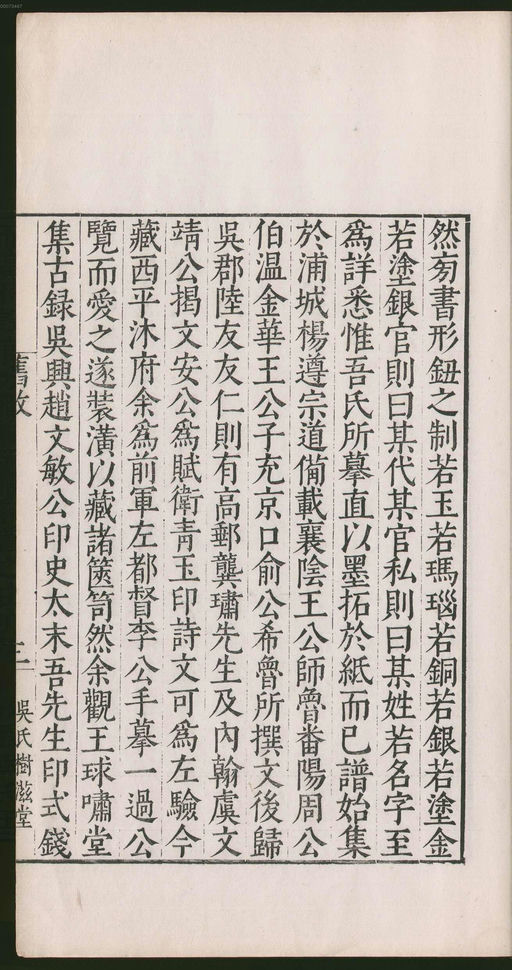 然旁書形鈕之制若玉若瑪瑙若銅若銀若塗金
若塗銀官則曰某代某官私則曰某姓若名字至
爲詳悉惟吾氏所摹直以墨拓於紙而已譜始集
於浦城楊遵宗道備載襄陰王公師魯番陽周公
伯温金華王公子充京口俞公希魯所撰文後歸
吳郡陸友友仁則有高郵龔璛先生及內翰虞文
靖公揭文安公爲賦衛青玉印詩文可爲左驗今
藏西平沐府余爲前軍左都督李公手摹一過公
覽而愛之遂裝潢以藏諸篋笥然余觀王球嘯堂
集古録吳興趙文敏公印史太末吾先生印式錢
舊攷
三
吳氏樹滋堂
00073467